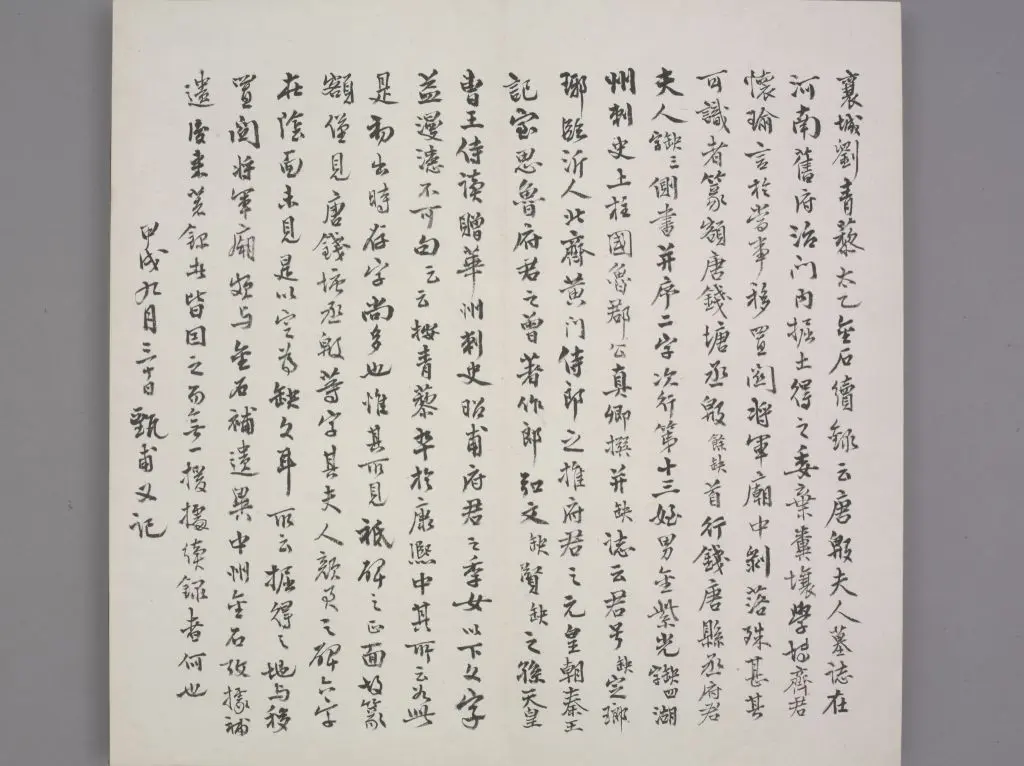 襄城劉青藜太乙金石續錄云唐殷夫人墓誌在
河南舊府治门内掘土得之委棄糞壤學博齊君
懷瑜言於當事移置関将軍廟中剝落殊甚其
可識者篆額唐錢塘丞殷餘缺首行錢唐縣丞府君
夫人缺三字側書并序二字次行第十三姪男金紫光缺四字湖
州刺史上柱國魯郡公真卿撰并缺誌云君号缺定瑯
瑯臨沂人北齊黄门侍郎之推府君之元皇朝秦王
記室思魯府君之曾著作郎弘文缺賢缺之孫天皇
曹王侍讀贈華州刺史昭甫府君之季女以下文字
益漫漶不可句云云按青藜卒於康熙中其所云如此
是初出時存字尚多也惟其所見祗碑之正面故篆
額僅見唐錢塘丞殷等字其夫人顔君之碑六字
在陰面未見是以定为缺文耳所云掘得之地与移
置関将軍廟頗与金石補遺異中州金石攷據補
遺後来著錄者皆因之而無一援據續錄者何也
甲戌九月三十日甄甫又记